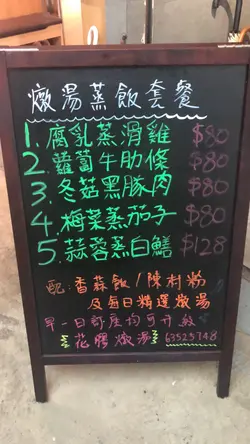 燉湯蒸飯套餐
1. 腐乳蒸滑雞 $80
2. 蘿蔔牛肋條 $80
3. 冬菇黑豚肉 $80
4. 梅菜蒸茄子 $80
5. 蒜蓉蒸白鱔 $128
配: 香蒜飯/陳村粉
及每日精選燉湯
早一日訂座均可升級
花膠燉湯 63525748